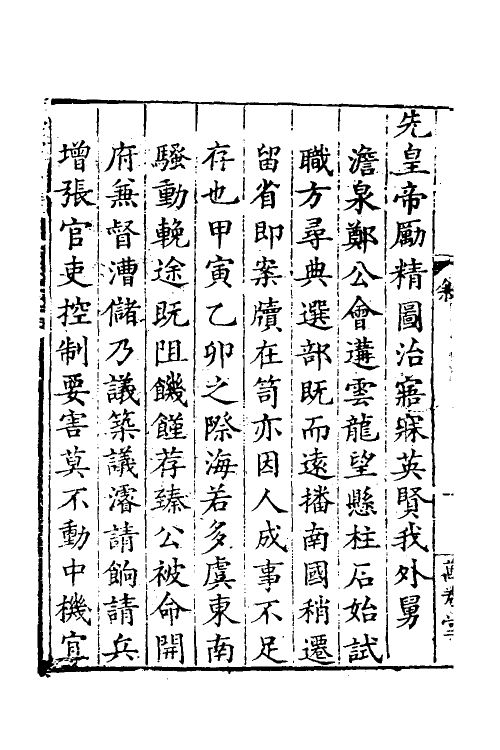 先皇帝勵精圖治寤寐英賢我外舅
澹泉鄭公會遘雲龍望懸柱石始試
職方尋典選部既而遠播南國稍遷
留省即案牘在笥亦因人成事不足
存也甲寅乙卯之際海若多虞東南
騷動輓途既阻饑饉荐臻公被命開
府兼督漕儲乃議築議濬請餉請兵
增張官吏控制要害莫不動中機宜